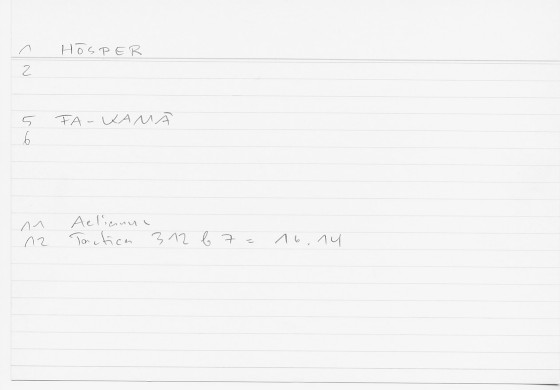 1 HŌSPER
2
5 TA-KAMĀ
6
11 Aelianus
12 Tactica 312 b 7 = 16.14